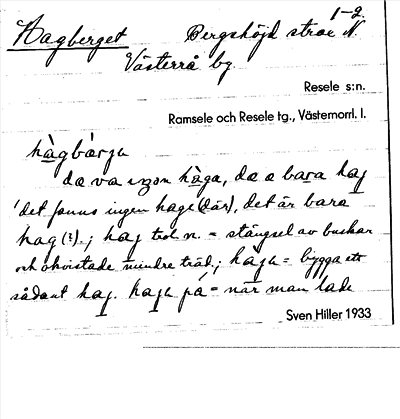 Hagberget Bergshöjd strax N. 1-2
Västerrå by.
Resele s:n.
Ramsele och Resele tg., Västernorrl. l.
hàgbärjɯ
dɑ vɑ iŋɑn hàga, dɑ ɑ bara haj
'det fanns ingen hage (där), det är bara
hag (:)'; haj trol. n. = stängsel av buskar
och okvistade mindre träd; hàja = bygga ett
sådant haj. haja på = när man lade
Sven Hiller 1933